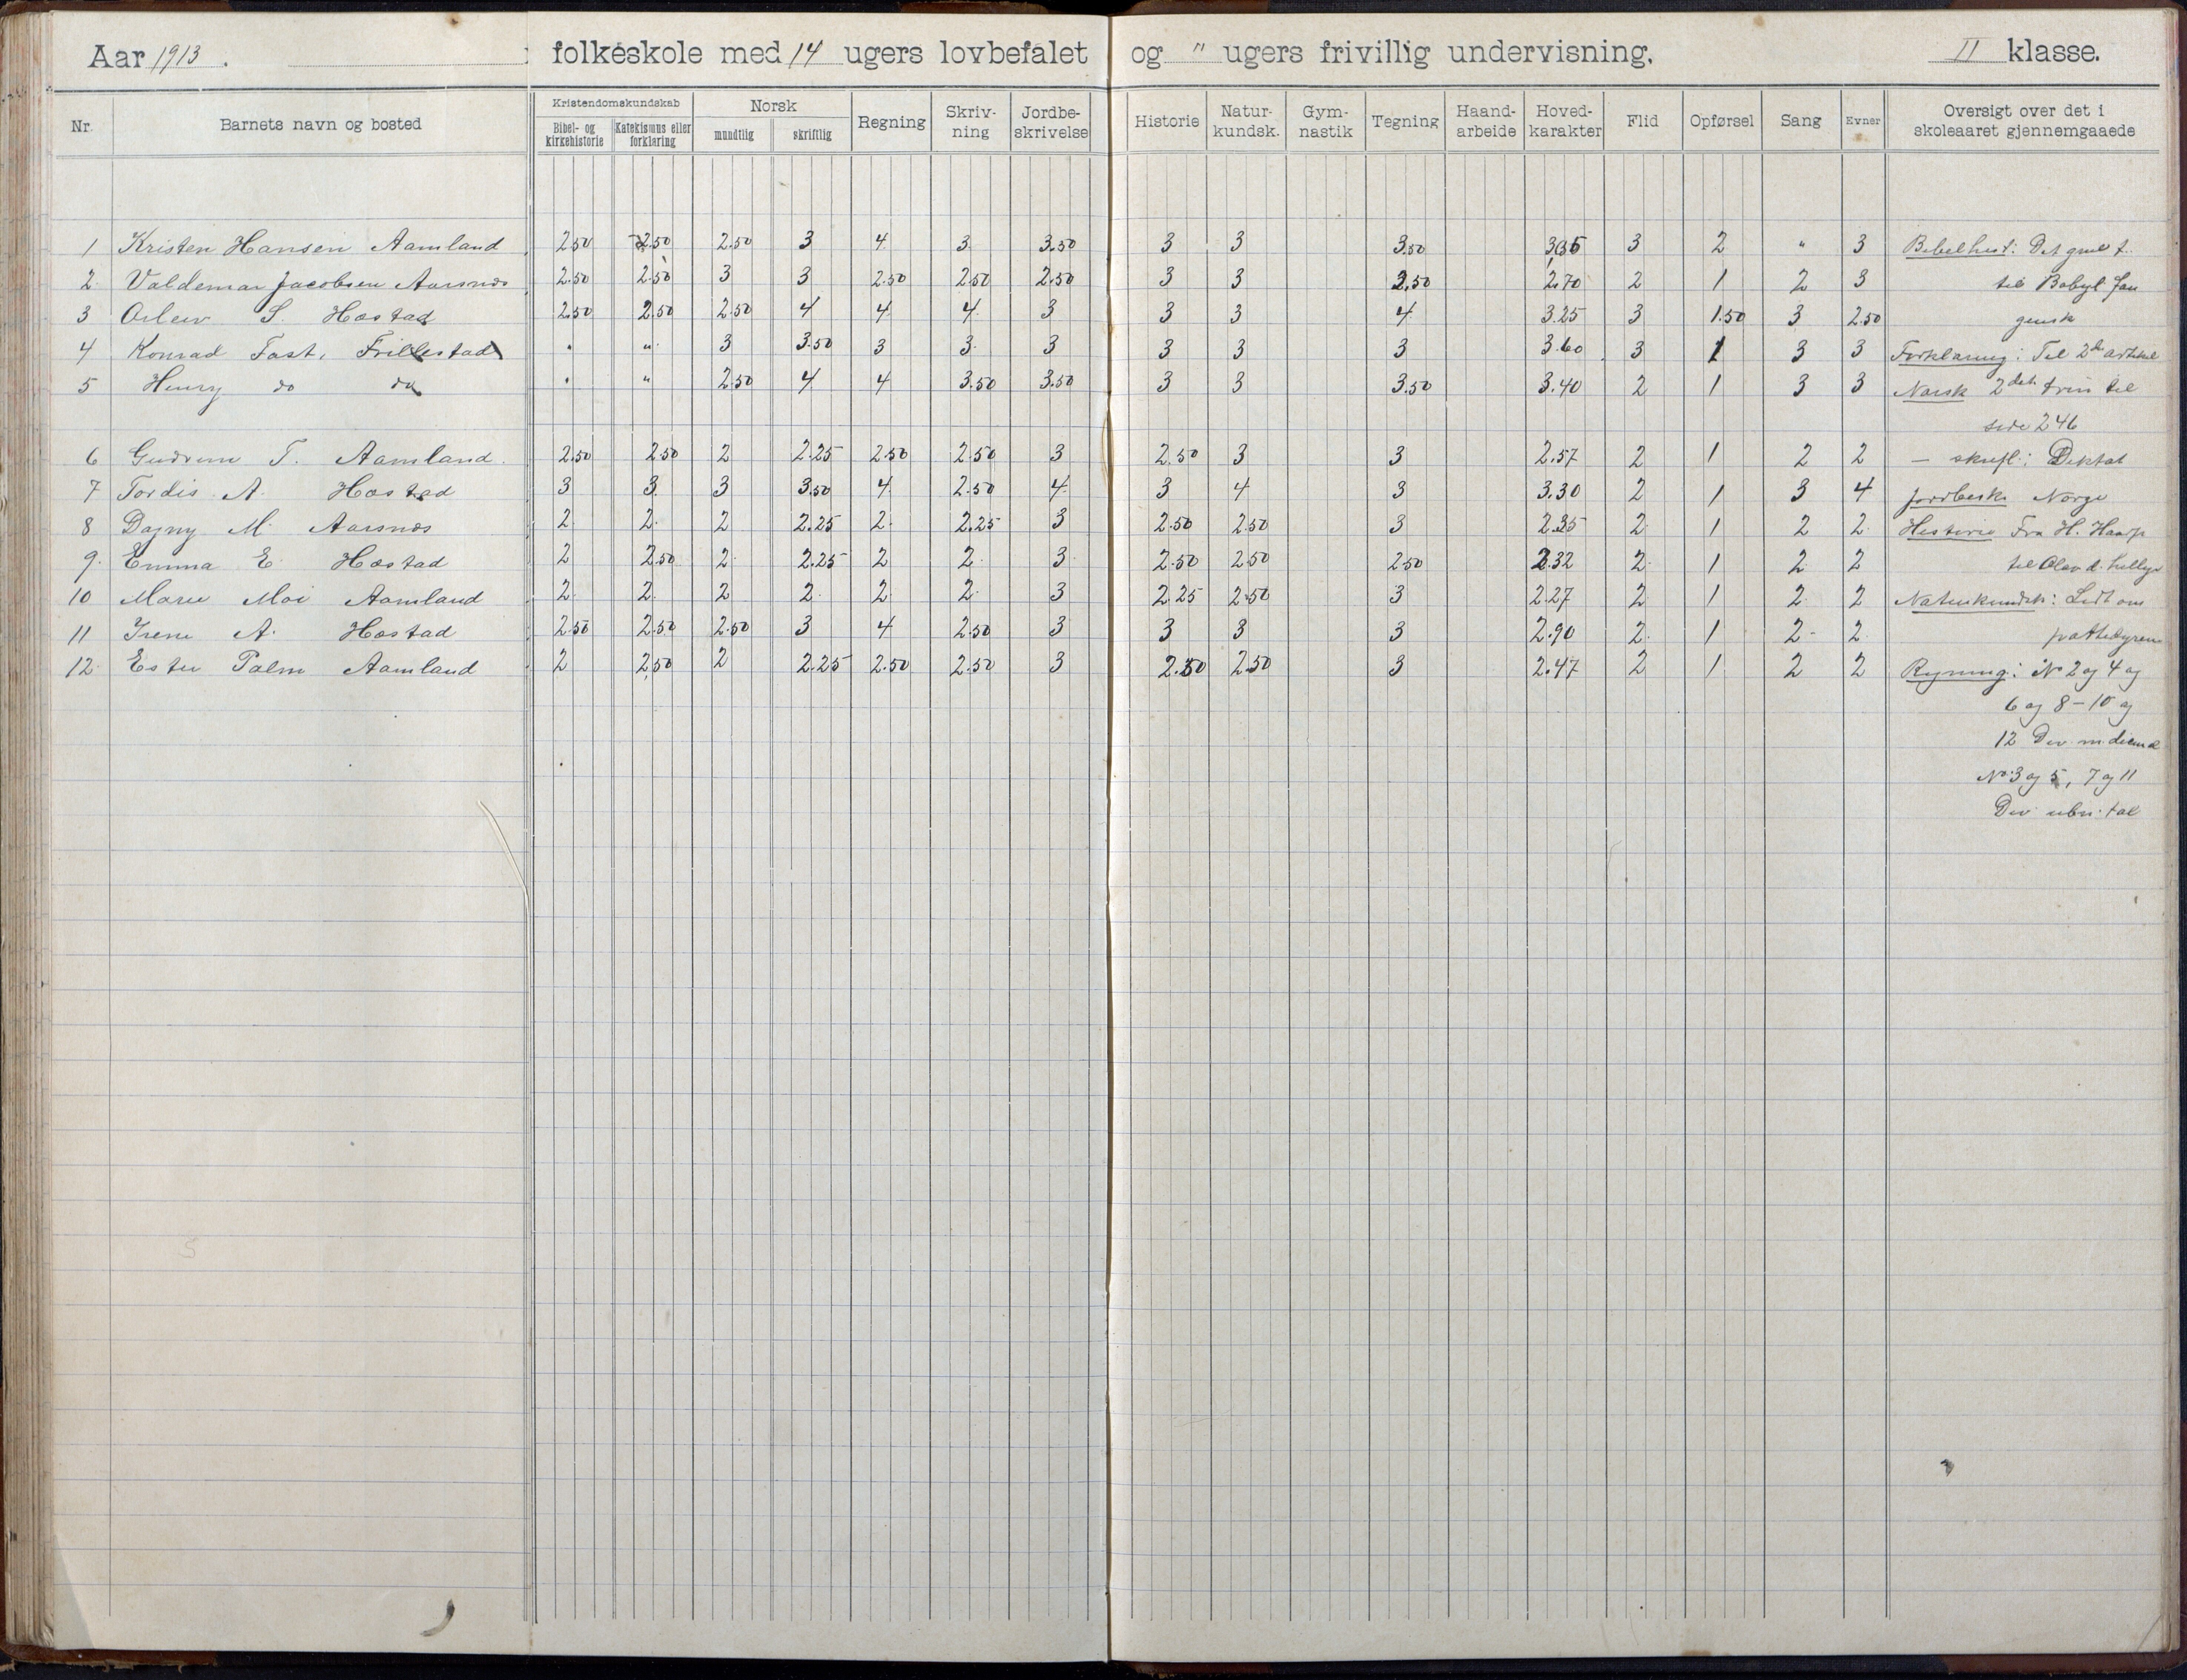 Aar 1913. folkeskole med 14 ugers lovbefalet og " ugers frivillig undervisning. II klasse.
Nr. Barnets navn og bosted Kristendomskundskab Bibel- og kirkehistorie Katekismus eller forklaring Norsk mundtlig skriftlig Regning Skriv-ning Jordbe-skrivelse Historie Natur-kundsk. Gym-nastik Tegning Haand-arbeide Hoved-karakter Flid Opførsel Sang Evner Oversigt over det i skoleaaret gjennemgaaede
1 Kristen Hansen Aamland 2.50 2.50 2.50 3 4 3 3.50 3 3 3.50 3 2 " 3 Bibelhist: Det gml t.
2 Valdemar Jacobsen Aarsnes 2.50 2.50 3 3 2.50 2.50 2.50 3 3 2.50 2.70 2 1 2 3 til Babyl. fan
3 S. Hæstad 2.50 2.50 2.50 4 4 4 3 3 3 4 3.25 3 1.50 3 2.50 gensk
4 Konrad Tast, Frillestad " " 3 3.50 3 3 3 3 3 3 3.60 3 1 3 3 Forklaring: Til 2den artikel
5 Henry do do " " 2.50 4 4 3.50 3.50 3 3 3.50 3.40 2 1 3 3 Norsk 2det trin til
side 246
6 Gudrun T. Aamland. 2.50 2.50 2 2.25 2.50 2.50 3 2.50 3 3 2.57 2 1 2 2 - skriftl: Diktat
7 Tordis A. Hæstad 3 3 3 3.50 4 2.50 4 3 4 3 3.30 2 1 3 4 Jordbesk. Norge
8 Dagny M. Aarsnes 2 2 2 2.25 2 2.25 3 2.50 2.50 3 2.35 2 1 2 2 Historie Fra H. Haarf
9. Emma E. Hæstad 2 2.50 2 2.25 2 2 3 2.50 2.50 2.50 2.32 2 1 2 2 til Olav d. hellige
10 Marie Moi Aamland 2 2 2 2 2 2 3 2.25 2.50 3 2.27 2 1 2 2 Naturkundsk: Lidt om
11 Irene A. Hæstad 2.50 2.50 2.50 3 4 2.50 3 3 3 3 2.90 2 1 2 2 pattedyrene
12 Ester Palm Aamland 2 2.50 2 2.25 2.50 2.50 3 2.50 2.50 3 2.47 2 1 2 2 Regning: No 2 og 4 og
6 og 8-10 og
12 Div. m.
No 3 og 5, 7 og 11
Div. tal